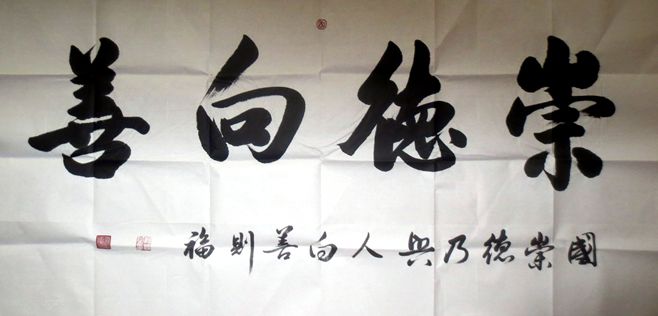 崇德向善
國崇德乃興人向善則福